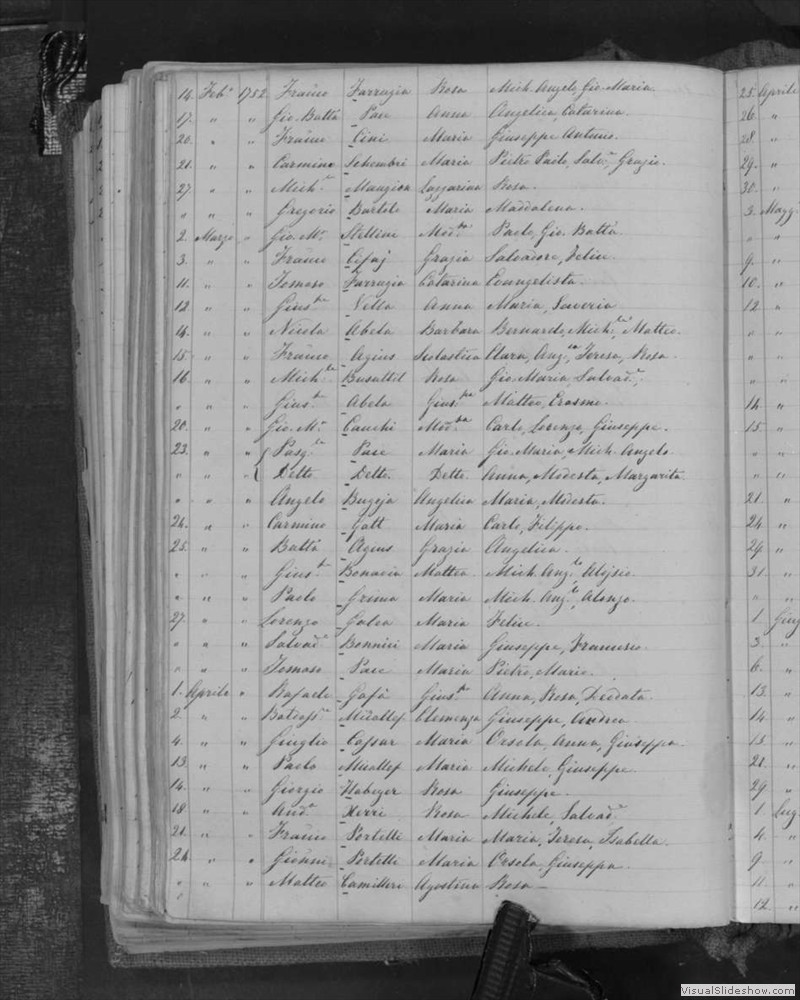 14. Feb.º 1752 Franco Farrugia Rosa Mich. Angelo, Gio. Maria.
17. " " Gio. Batta Pace Anna Angelica, Catarina.
20. " " Franco Cini Maria Giuseppe Antonio.
21. " " Carmine Schembri Maria Pietro Paolo, Salv.e Grazio.
27. " " Mich.e Mangion Lazzarina Rosa.
" " " Gregorio Bartolo Maria Maddalena.
2. Marzo " Gio. M.a Stellini Mod.ta Paolo, Gio. Batta.
3. " " Franco Cassaj Grazia Salvadore, Felice.
11. " " Tomaso Farrugia Catarina Evangelista.
12 " " Gius.pe Vella Anna Maria, Saveria.
14. " " Nicola Abela Barbara Bernardo, Mich.le, Matteo.
15. " " Franco Agius Scolastica Clara, Ang.ca, Teresa, Rosa.
16. " " Mich.le Busuttil Rosa Gio. Maria, Salvad.e
" " " Gius.e Abela Gius.pa Matteo, Erasmo.
20. " " Gio. M.a Cauchi Mod.ta Carlo, Lorenzo, Giuseppe.
23. " " Pasq.le Pace Maria Gio. Maria, Mich. Angelo
" " " Detto Detto Detta Anna, Modesta, Margarita.
" " " Angelo Bugeja Angelica Maria, Modesta.
24. " " Carmine Gatt Maria Carlo, Filippo.
25. " " Batta Agius Grazia Angelica.
" " " Gius.e Bonavia Mattea Mich. Ang.lo, Aloisio.
" " " Paolo Grima Maria Mich. Ang.lo, Alonzo.
27. " " Lorenzo Galea Maria Felice.
" " " Salvad.e Bonnici Maria Giuseppe, Francesco
" " " Tomaso Pace Maria Pietro, Mario.
1. Aprile " Rafaele Gafà Gius.pa Anna, Rosa, Deodata.
2. " " Baldass.e Micallef Clemenza Giuseppe, Andrea
4. " " Giuglio Cassar Maria Orsola, Anna, Giuseppa.
13. " " Paolo Micallef Maria Michele, Giuseppe.
14. " " Giorgio Haber Rosa Giuseppe.
18. " " And.a Xerri Rosa Michele, Salvad.e
21. " " Franco Portelli Maria Maria, Teresa, Isabella.
24. " " Gionni Portelli Maria Orsola, Giuseppa.
" " " Matteo Camilleri Agostina Rosa
25. Aprile
26. "
28. "
29. "
30. "
3. Magg
" "
9. "
10. "
12 "
" "
" "
" "
14. "
15. "
" "
" "
21. "
24. "
29. "
31. "
" "
1. Giug
3. "
6. "
13. "
14. "
15. "
21. "
29. "
1. Lug
4. "
9. "
11. "
12. "
VisualSlideshow.com